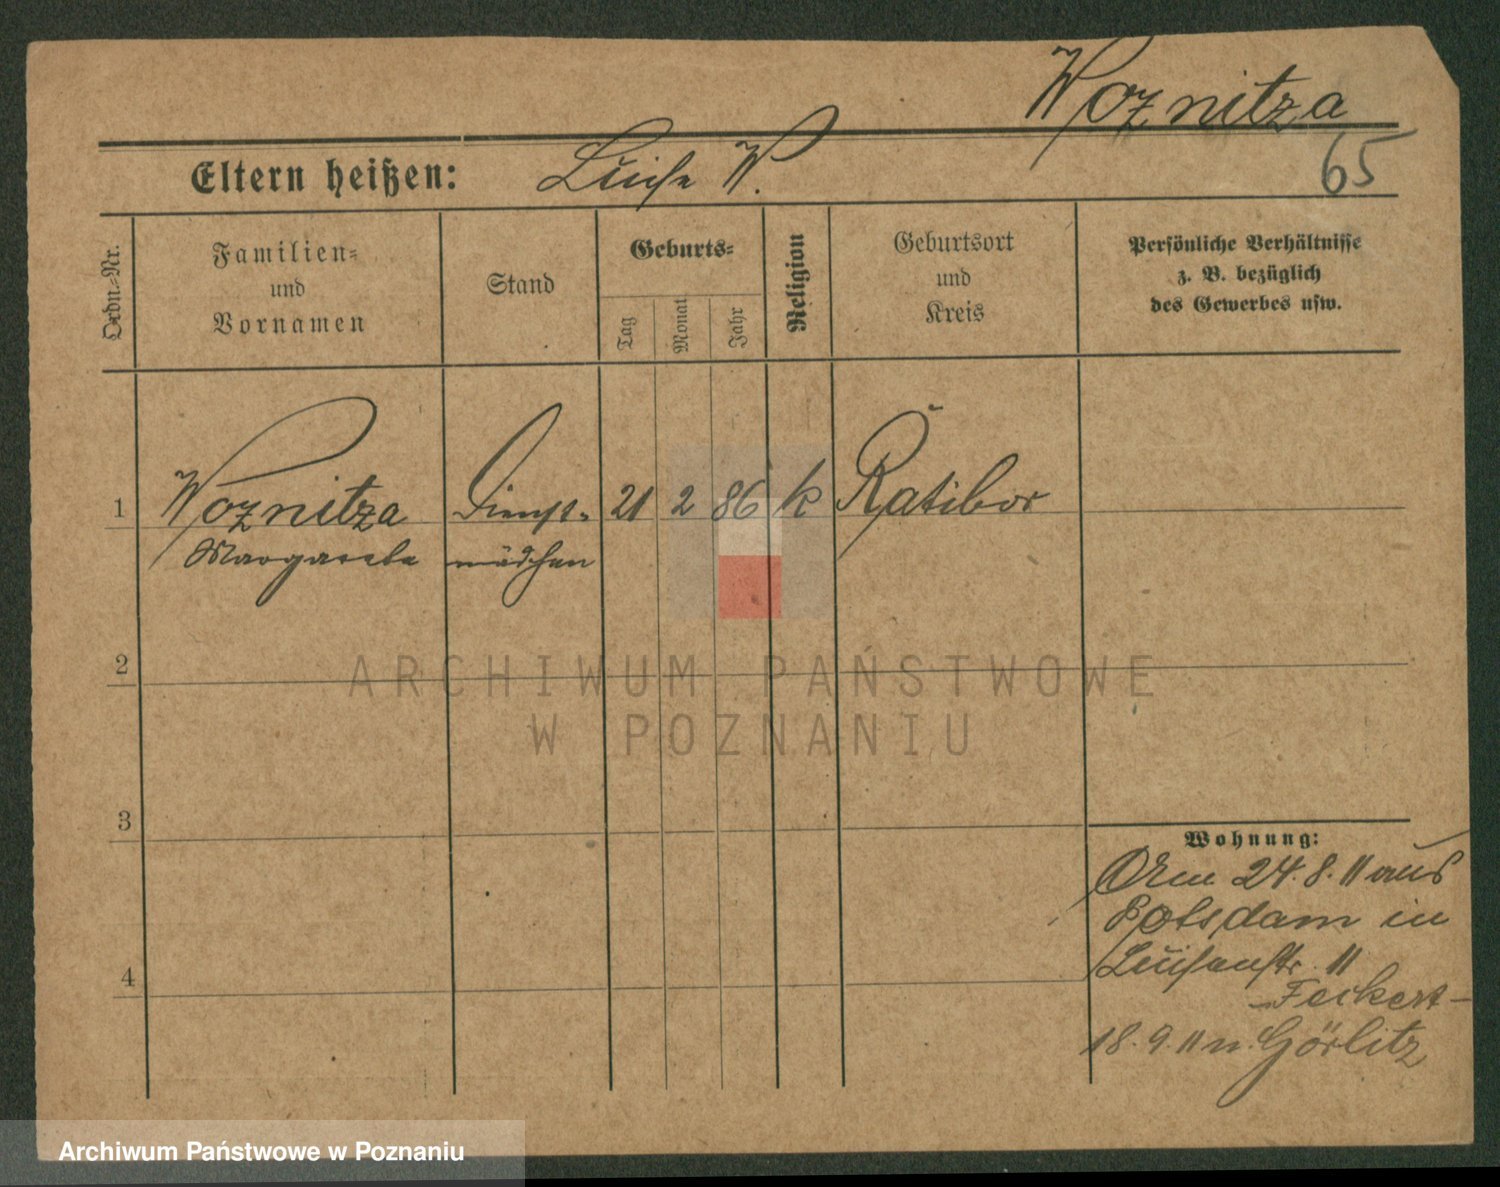 Woznitza
65
Eltern heißen: Luise W.
Ordn.-Nr.
Familien-
und
Vornamen
Stand
Geburts-
Tag
Monat
Jahr
Religion
Geburtsort
und
Kreis
Persönliche Verhältnisse
z. B. bezüglich
des Gewerbes usw.
1 Woznitza Dienst- 21 2 86 k Ratibor
Margarete mädchen
2
3
4
Wohnung:
24.8.11 aus
Potsdam in
Luisenstr. 11
- Feckert -
18.9.11 n. Görlitz
ARCHIWUM PAŃSTWOWE
W POZNANIU
Archiwum Państwowe w Poznaniu